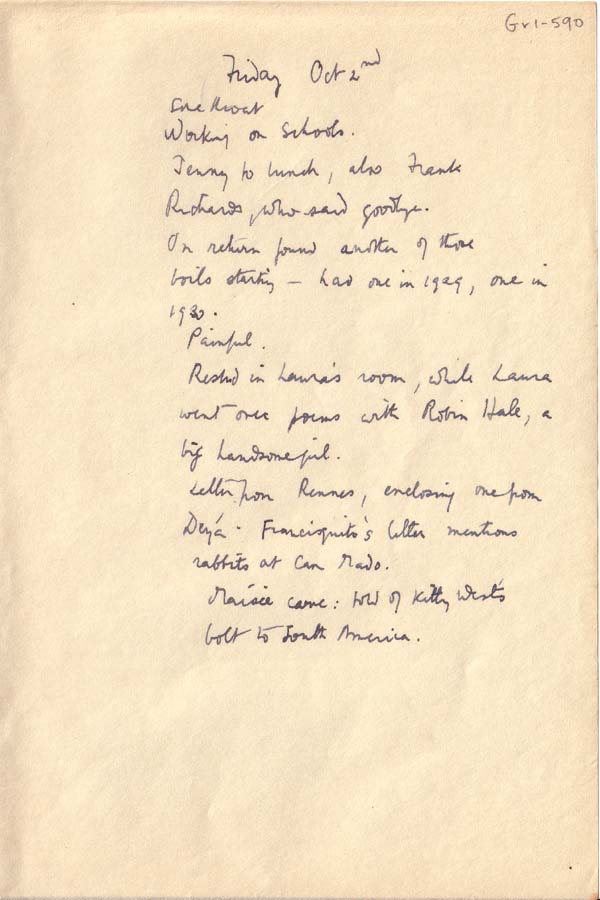 Gr1-590
Friday Oct 2nd
Sore throat
Working on Schools.
Jenny to lunch, also Frank
Richards, who said goodbye.
On return found another of those
boils starting – had one in 1929, one in
1930.
Painful.
Rested in Laura's room, while Laura
went over poems with Robin Hale, a
big handsome girl.
Letter from Rennes, enclosing one from
Deyá. Francisquito's letter mentions
rabbits at Can Mado.
Maisie came: told of Kitty West's
bolt to South America.